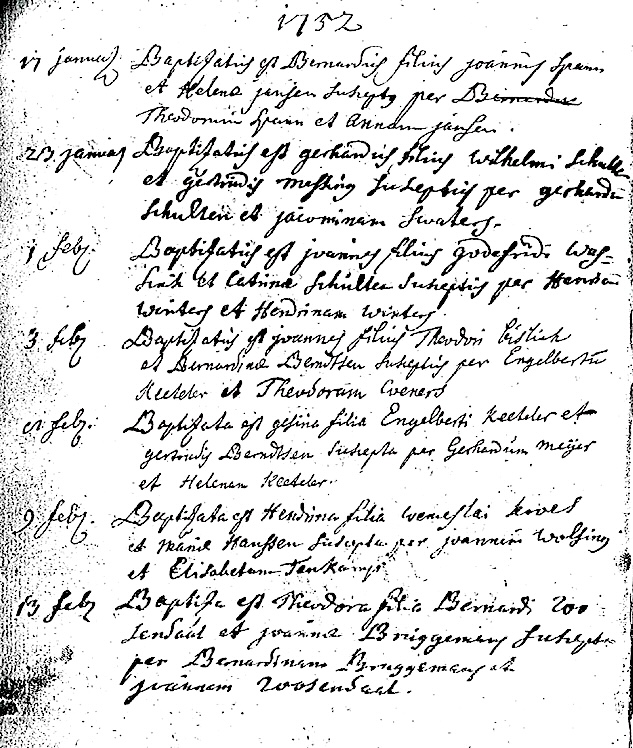 1752
17 januarÿ Baptisatus est Bernardus filius joannis Spann
et Helena jansen Suseptus per Bernardum
Theodorum Spann et Annam jansen.
23 januarÿ Baptisatus est gerhardus filius Wilhelmi Schulte
et gertrudis messing Suseptus per gerhardum
Schulten et jacominam Swaters.
1 febr. Baptisatus est joannes filius godefridi Was-
sink et Catrina Schulten Suseptus per
Winters et Hendrinam Winters
3 febr Baptisatus est joannes filius Theodori bislich
et Bernardina Berndtsen Suseptus per Engelbertum
Keeteler et Theodoram Eveners
febr. Baptisata est gesina filia Engelberti Keeteler et
gertrudis Berndtsen Susepta per Gerhardum meijer
et Helenam Keeteler.
9 febr. Baptisata est Hendrina filia
et maria Hanssen Susepta per joannem Wolfing
et Elisabetam Tenkamps
13 febr Baptisa est Theodora filia Bernardi Roo
sendaal et joanna Bruggemans Susepta
per Bernardinam Bruggemans et
joannem Roosendaal.